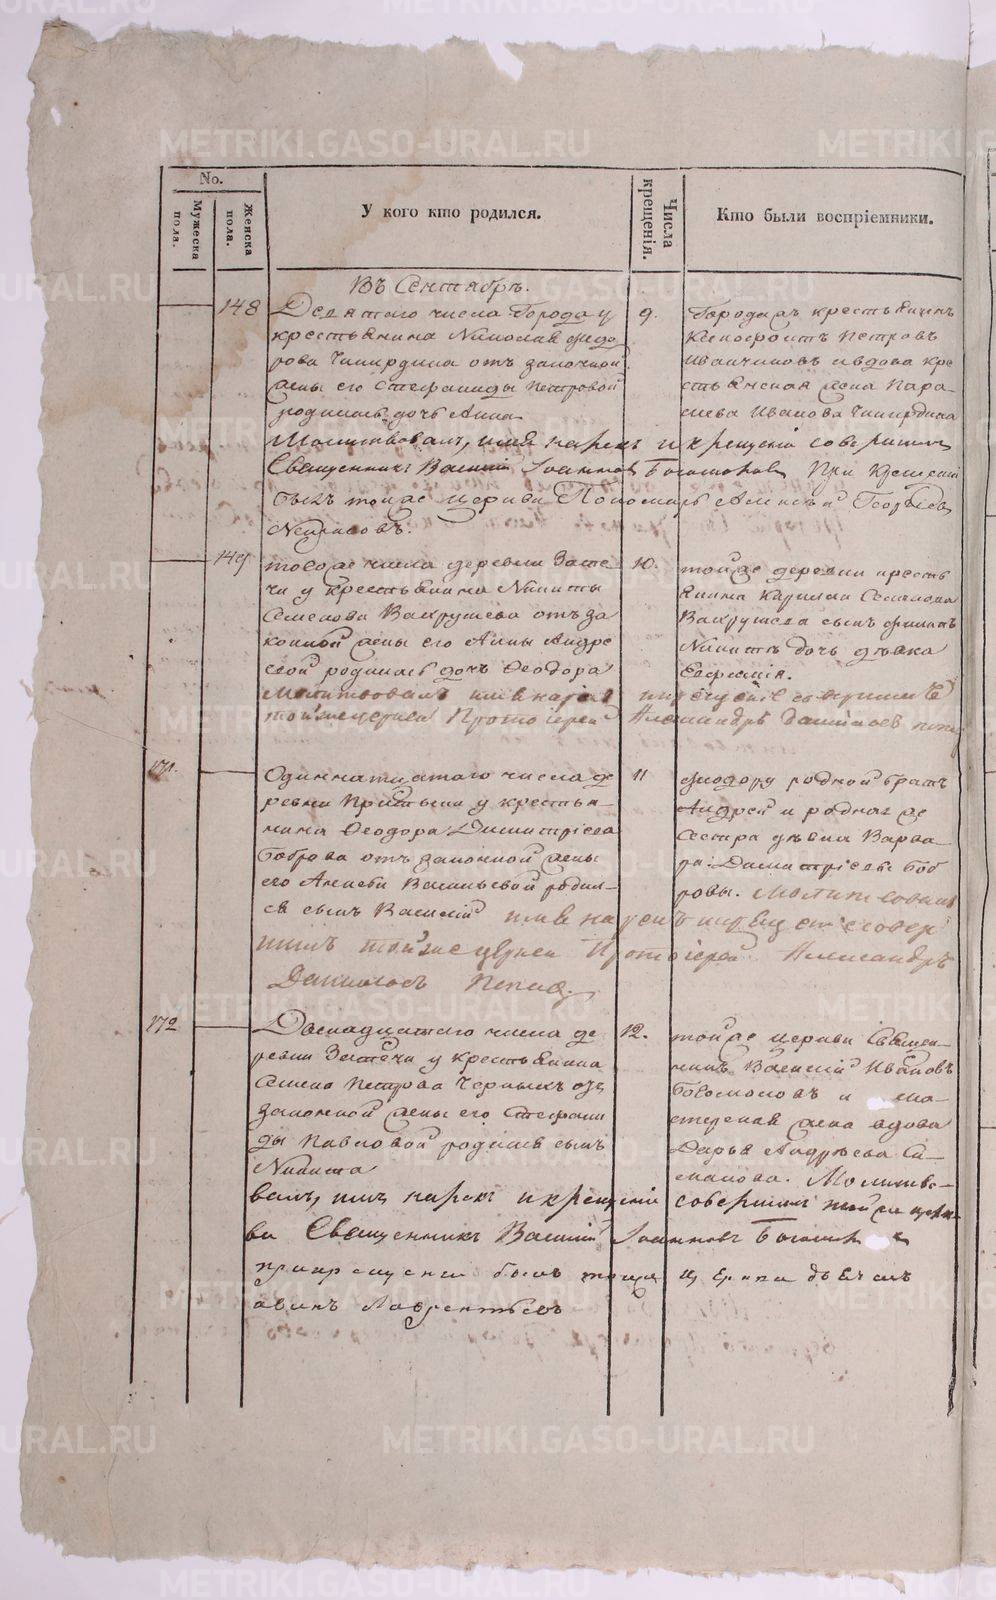 No.
Мужеска пола.
Женска пола.
У кого кто родился.
Числа крещенія.
Кто были воспріемники.
Въ Сентябрѣ.
148
Девятаго числа Города у
крестьянина Николая Фидо
рова Чипирдина отъ законной
жены его Стефаниды Петровой
родилась дочь Анна
9.
Города крестьянинъ
Ксенофонтъ Петровъ
Иванчиковъ вдова кре
стьянская жена Пара-
скева Иванова
Молитвовалъ, имя нарекъ и крещеніе совершилъ
Священникъ Василій Іоанновъ Богомоловъ При крещеніи
былъ тойже церкви Пономарь Алексѣй Георгіевъ
149
тогоже числа деревни Зате
чи у крестьянина Никиты
Семенова Вахрушева отъ за
конной жены его Анны Андре
евой родилась дочь Феодора
10.
тойже деревни кресть
янина Кирилла Семенова
Вахрушева сынъ Филатъ
Никитъ дочь дѣвка
Евфросинія.
Молитвовалъ имя нарекъ и крещеніе совершилъ
тойже церкви Протоіерей Александръ Даниловъ Поповъ
171.
Одиннатцатаго числа де
ревни у крестья-
нина Феодора Димитріева
Боброва отъ законной жены
его Анисьи Васильевой родил-
ся сынъ Василій
11
Феодору родной братъ
Андрей и родная же
сестра дѣвка Варва
ра Димитріевы Боб
ровы. Молитвовалъ
имя нарекъ и крещеніе совер
шилъ тойже церкви Протоіерей Александръ
Даниловъ Поповъ.
172
Двенадцатаго числа де
ревни Затечи у крестьянина
Семена Петрова Черныхъ отъ
законной жены его Стефани
ды Павловой родился сынъ
Никита
12.
тойже церкви Священ-
никъ Василій Ивановъ
Богомоловъ и ма-
стерская жена вдова
Дарья Андреева Си-
манова. Молитво-
валъ, имя нарекъ и крещеніе совершилъ тойже церк-
ви Священникъ Василій Іоанновъ Богомолов
при крещеніи былъ тойже церкви дьячекъ
Лаврентьевъ
METRIKI.GASO-URAL.RU